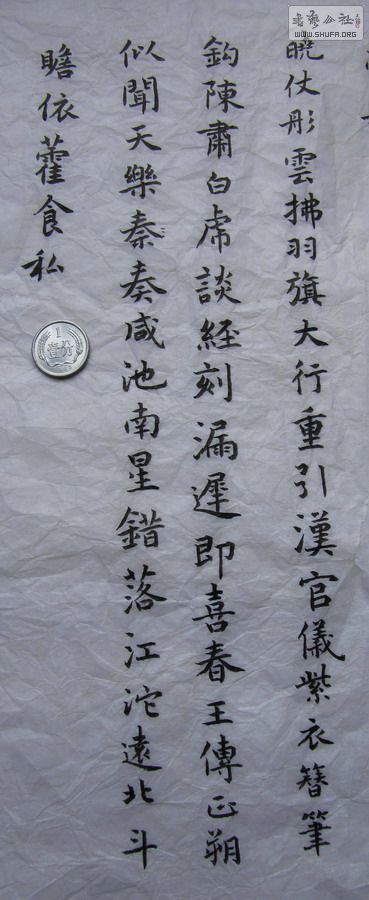 曉仗彤雲拂羽旗大行重引漢官儀紫衣簪筆
鈎陳肅白虎談經刻漏遲即喜春王傳正朔
似聞天樂秦奏咸池南星錯落江沱遠北斗
瞻依藿食私
1
壹分
書藝公社
WWW.SHUFA.ORG